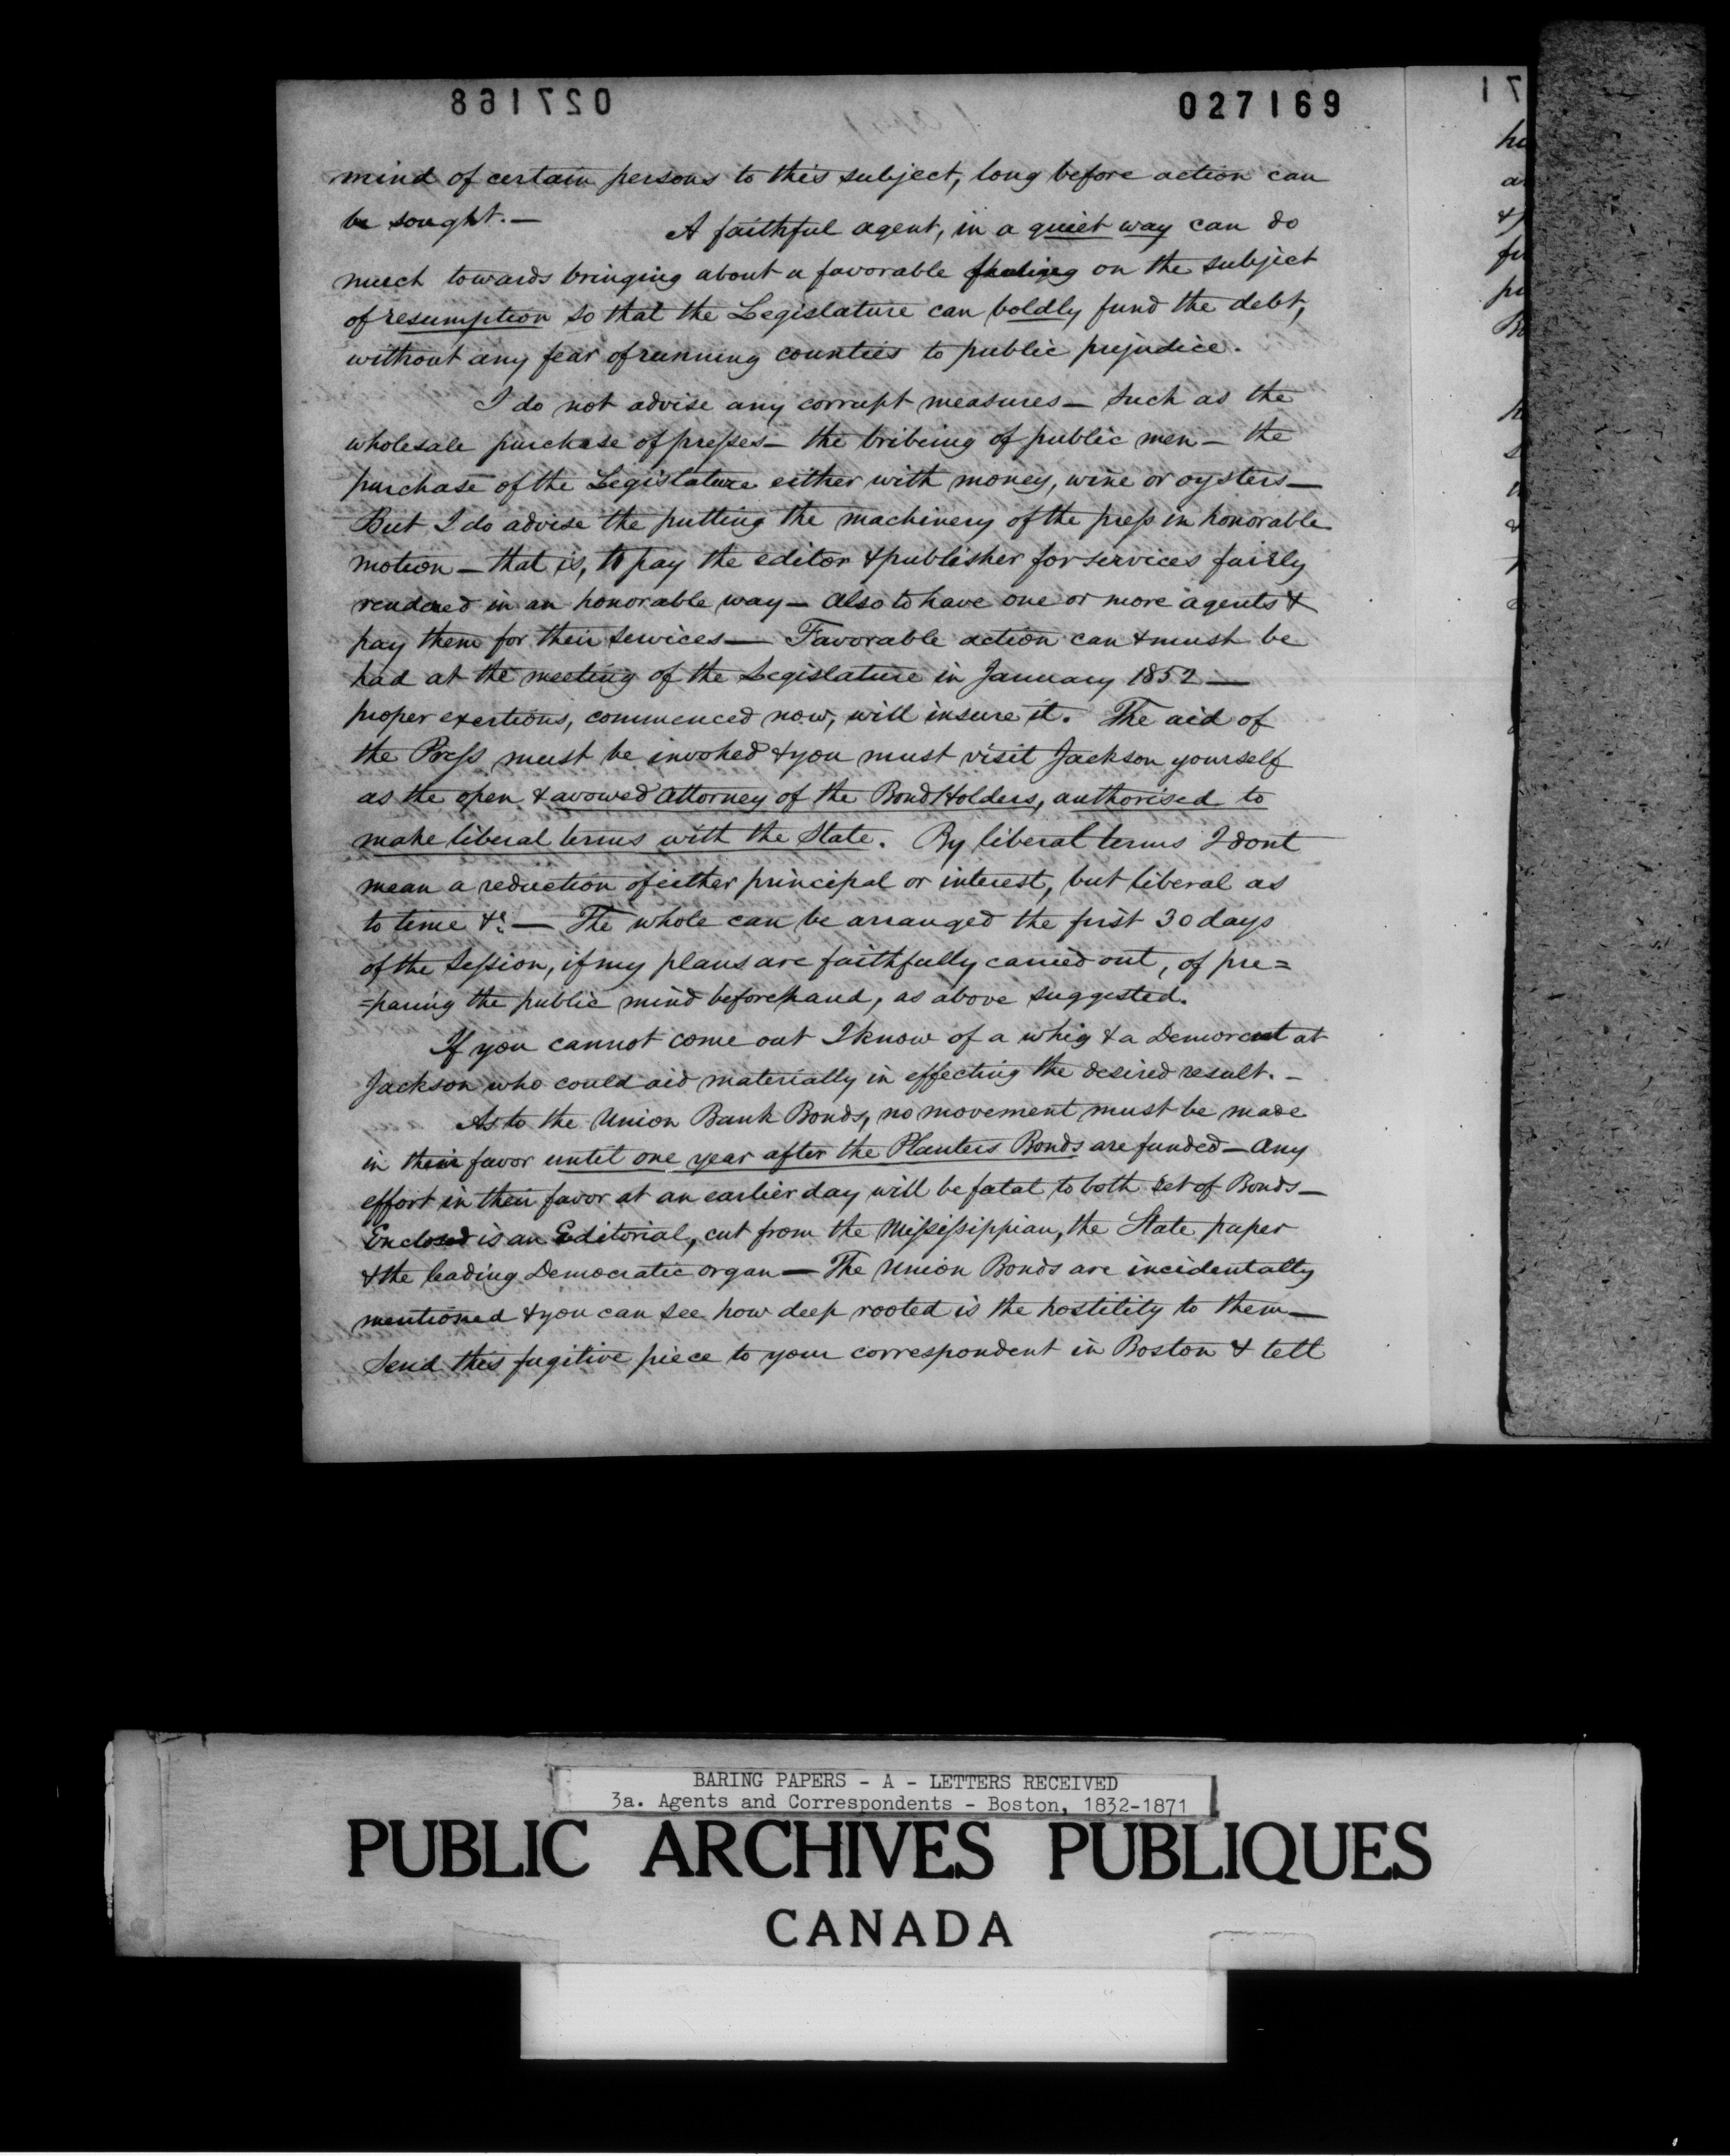 027168
027169
mind of certain persons to this subject, long before action can
be sought. —
A faithful agent, in a quiet way can do
much towards bringing about a favorable feeling on the subject
of resumption so that the Legislature can boldly fund the debt,
without any fear of running counties to public prejudice.
I do not advise any corrupt measures — such as the
wholesale purchase of presses — the bribeing of public men — the
purchase of the Legislature either with money, wine or oysters —
But I do advise the putting the machinery of the press in honorable
motion — that is, to pay the editor & publisher for services fairly
rendered in an honorable way — also to have one or more agents &
pay them for their services — Favorable action can & must be
had at the meeting of the Legislature in January 1852 —
proper exertions, commenced now, will insure it. The aid of
the Press must be invoked & you must visit Jackson yourself
as the open & avowed attorney of the Bond Holders, authorised to
make liberal terms with the State. By liberal terms I dont
mean a reduction of either principal or interest, but liberal as
to time &c. — The whole can be arranged the first 30 days
of the Session, if my plans are faithfully carried out, of pre=
=paring the public mind beforehand, as above suggested.
If you cannot come out I know of a whig & a Democrat at
Jackson who could aid materially in effecting the desired result. —
As to the Union Bank Bonds, no movement must be made
in their favor until one year after the Planters Bonds are funded — any
effort in their favor at an earlier day will be fatal to both set of Bonds —
Enclosed is an Editorial, cut from the Mississippian, the State paper
& the leading Democratic organ — The Union Bonds are incidentally
mentioned & you can see how deep rooted is the hostility to them —
Send this fugitive piece to your correspondent in Boston & tell
BARING PAPERS - A - LETTERS RECEIVED
3a. Agents and Correspondents - Boston, 1832-1871
PUBLIC ARCHIVES PUBLIQUES
CANADA